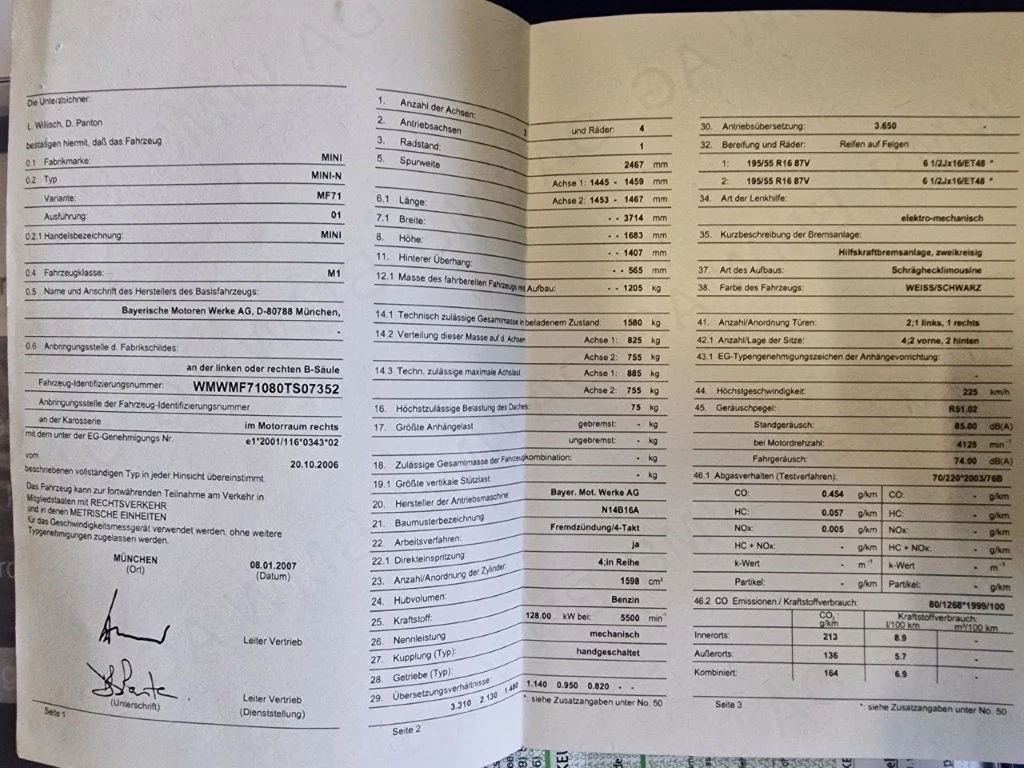 Die Unterzeichner:
L. Willisch, D. Panton
bestätigen hiermit, daß das Fahrzeug
0.1 Fabrikmarke: MINI
0.2 Typ MINI-N
Variante: MF71
Ausführung: 01
0.2.1 Handelsbezeichnung: MINI
0.4 Fahrzeugklasse: M1
0.5 Name und Anschrift des Herstellers des Basisfahrzeugs:
Bayerische Motoren Werke AG, D-80788 München,
-
0.6 Anbringungsstelle d. Fabrikschildes:
an der linken oder rechten B-Säule
Fahrzeug-Identifizierungsnummer: WMWMF71080TS07352
Anbringungsstelle der Fahrzeug-Identifizierungsnummer
an der Karosserie im Motorraum rechts
mit dem unter der EG-Genehmigungs Nr. e1*2001/116*0343*02
vom 20.10.2006
beschriebenen vollständigen Typ in jeder Hinsicht übereinstimmt.
Das Fahrzeug kann zur fortwährenden Teilnahme am Verkehr in
Mitgliedstaaten mit RECHTSVERKEHR
und in denen METRISCHE EINHEITEN
für das Geschwindigkeitsmessgerät verwendet werden, ohne weitere
Typgenehmigungen zugelassen werden.
MÜNCHEN 08.01.2007
(Ort) (Datum)
Leiter Vertrieb
Leiter Vertrieb
(Unterschrift) (Dienststellung)
Seite 1
1. Anzahl der Achsen: 2 und Räder: 4
2. Antriebsachsen 1
3. Radstand: 2467 mm
5. Spurweite Achse 1: 1445 - 1459 mm
Achse 2: 1453 - 1467 mm
6.1 Länge: - - 3714 mm
7.1 Breite: - - 1683 mm
8. Höhe: - - 1407 mm
11. Hinterer Überhang: - - 565 mm
12.1 Masse des fahrbereiten Fahrzeugs mit Aufbau: - - 1205 kg
14.1 Technisch zulässige Gesamtmasse in beladenem Zustand: 1580 kg
14.2 Verteilung dieser Masse auf d. Achsen Achse 1: 825 kg
Achse 2: 755 kg
14.3 Techn. zulässige maximale Achslast Achse 1: 885 kg
Achse 2: 755 kg
16. Höchstzulässige Belastung des Daches: 75 kg
17. Größte Anhängelast gebremst: - kg
ungebremst: - kg
18. Zulässige Gesamtmasse der Fahrzeugkombination: - kg
19.1 Größte vertikale Stützlast - kg
20. Hersteller der Antriebsmaschine Bayer. Mot. Werke AG
21. Baumusterbezeichnung N14B16A
22. Arbeitsverfahren: Fremdzündung/4-Takt
22.1 Direkteinspritzung: ja
23. Anzahl/Anordnung der Zylinder: 4;in Reihe
24. Hubvolumen: 1598 cm³
25. Kraftstoff: Benzin
26. Nennleistung 128.00 kW bei: 5500 min⁻¹
27. Kupplung (Typ): mechanisch
28. Getriebe (Typ): handgeschaltet
29. Übersetzungsverhältnisse:
3.310 2.130 1.480 1.140 0.950 0.820 - -
*: siehe Zusatzangaben unter No. 50
Seite 2
30. Antriebsübersetzung: 3.650 -
32. Bereifung und Räder: Reifen auf Felgen
1: 195/55 R16 87V 6 1/2Jx16/ET48 *
2: 195/55 R16 87V 6 1/2Jx16/ET48 *
34. Art der Lenkhilfe:
elektro-mechanisch
35. Kurzbeschreibung der Bremsanlage:
Hilfskraftbremsanlage, zweikreisig
37. Art des Aufbaus: Schräghecklimousine
38. Farbe des Fahrzeugs: WEISS/SCHWARZ
41. Anzahl/Anordnung Türen: 2;1 links, 1 rechts
42.1 Anzahl/Lage der Sitze: 4;2 vorne, 2 hinten
43.1 EG-Typengenehmigungszeichen der Anhängevorrichtung:
-
44. Höchstgeschwindigkeit: 225 km/h
45. Geräuschpegel: R51.02
Standgeräusch: 85.00 dB(A)
bei Motordrehzahl: 4125 min⁻¹
Fahrgeräusch: 74.00 dB(A)
46.1 Abgasverhalten (Testverfahren): 70/220*2003/76B
CO: 0.454 g/km CO: - g/km
HC: 0.057 g/km HC: - g/km
NOx: 0.005 g/km NOx: - g/km
HC + NOx: - g/km HC + NOx: - g/km
k-Wert - m⁻¹ k-Wert - m⁻¹
Partikel: - g/km Partikel: - g/km
46.2 CO Emissionen / Kraftstoffverbrauch: 80/1268*1999/100
CO₂: Kraftstoffverbrauch:
g/km l/100 km m³/100 km
Innerorts: 213 8.9 -
Außerorts: 136 5.7 -
Kombiniert: 164 6.9 -
Seite 3 *: siehe Zusatzangaben unter No. 50